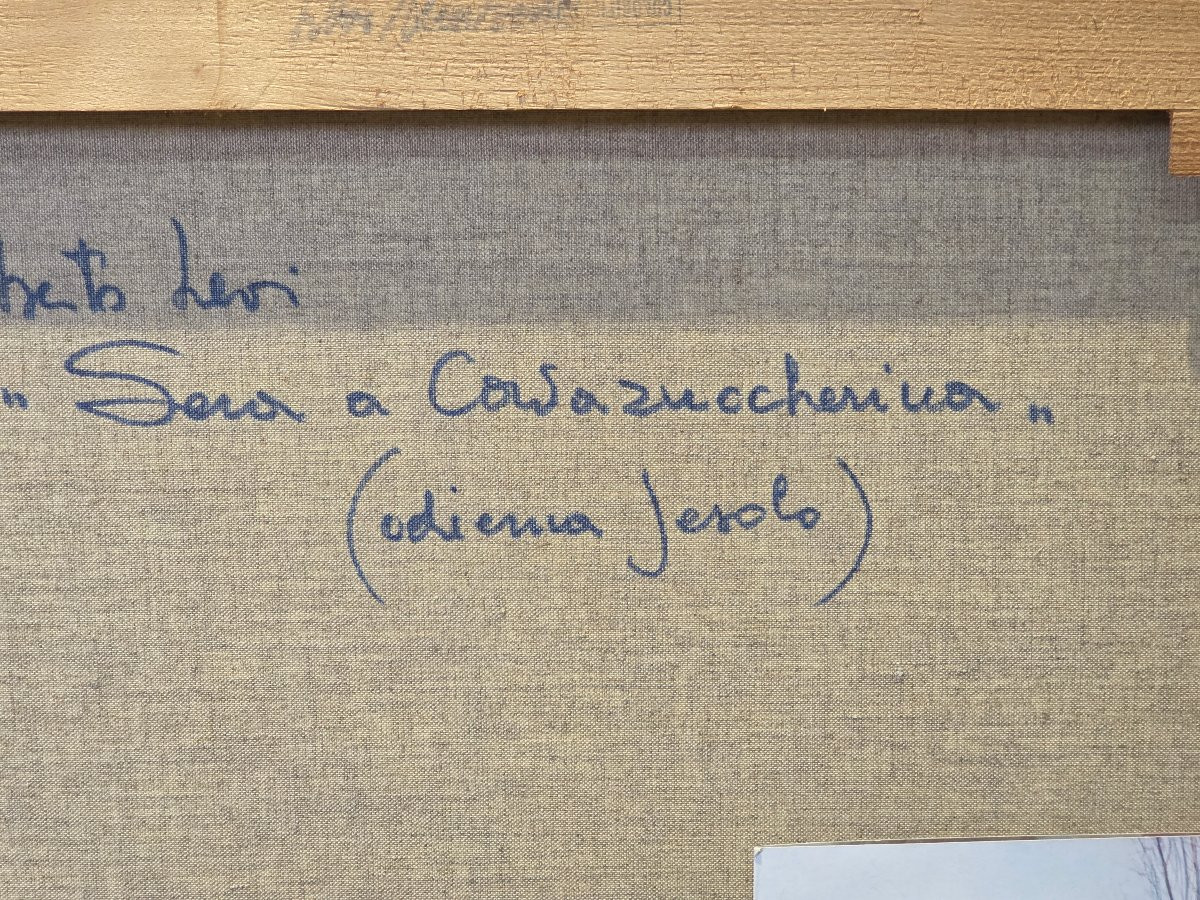 berto Levi
" Sera a Cavazuccherina "
(odierna Jesolo)